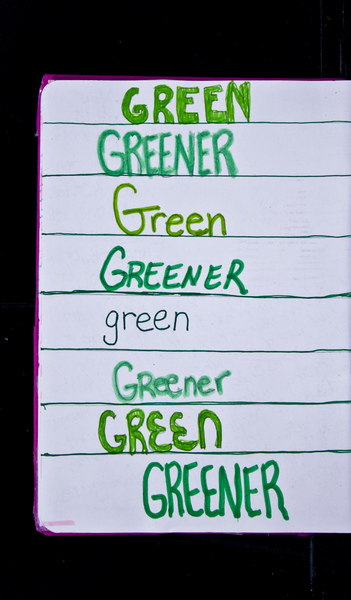 GREEN
GREENER
Green
GREENER
green
Greener
GREEn
GREENER